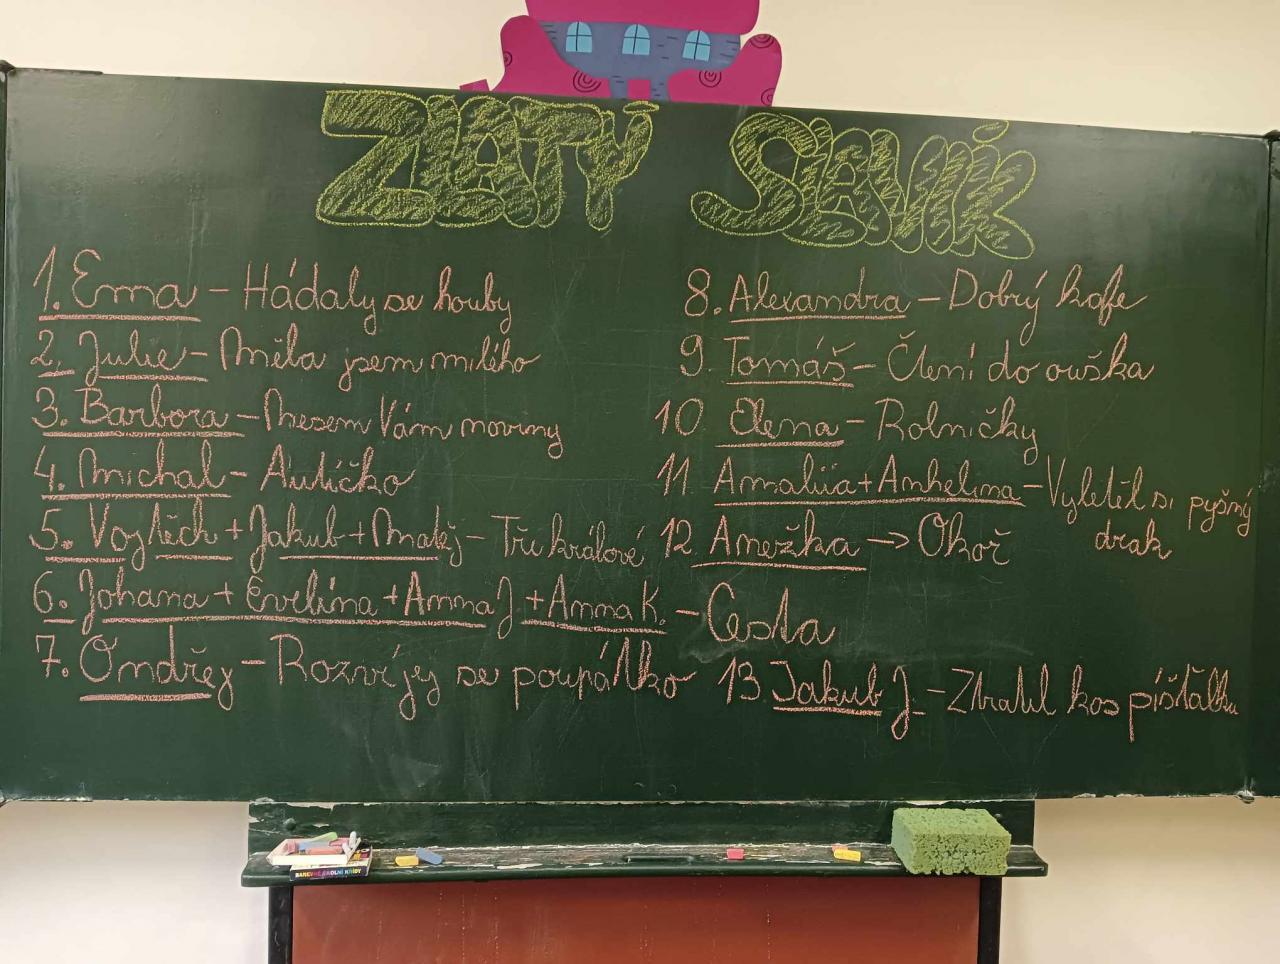 ZLATÝ SLAVÍK
1. Ema - Hádaly se houby
2. Julie - Měla jsem milého
3. Barbora - Nesem Vám noviny
4. Michal - Autíčko
5. Vojtěch + Jakub + Matěj - Tři králové
6. Johana + Evelína + Anna J. + Anna K. - Cesta
7. Ondřej - Rozvíjej se poupátko
8. Alexandra - Dobrý kafe
9. Tomáš - Čtení do ouška
10 Elena - Rolničky
11 Amaliia + Anhelina - Vyletěl si pyšný
drak
12 Anežka → Okoř
13 Jakub J. - Ztratil kos píšťalku
BAREVNÉ ŠKOLNÍ KŘÍDY